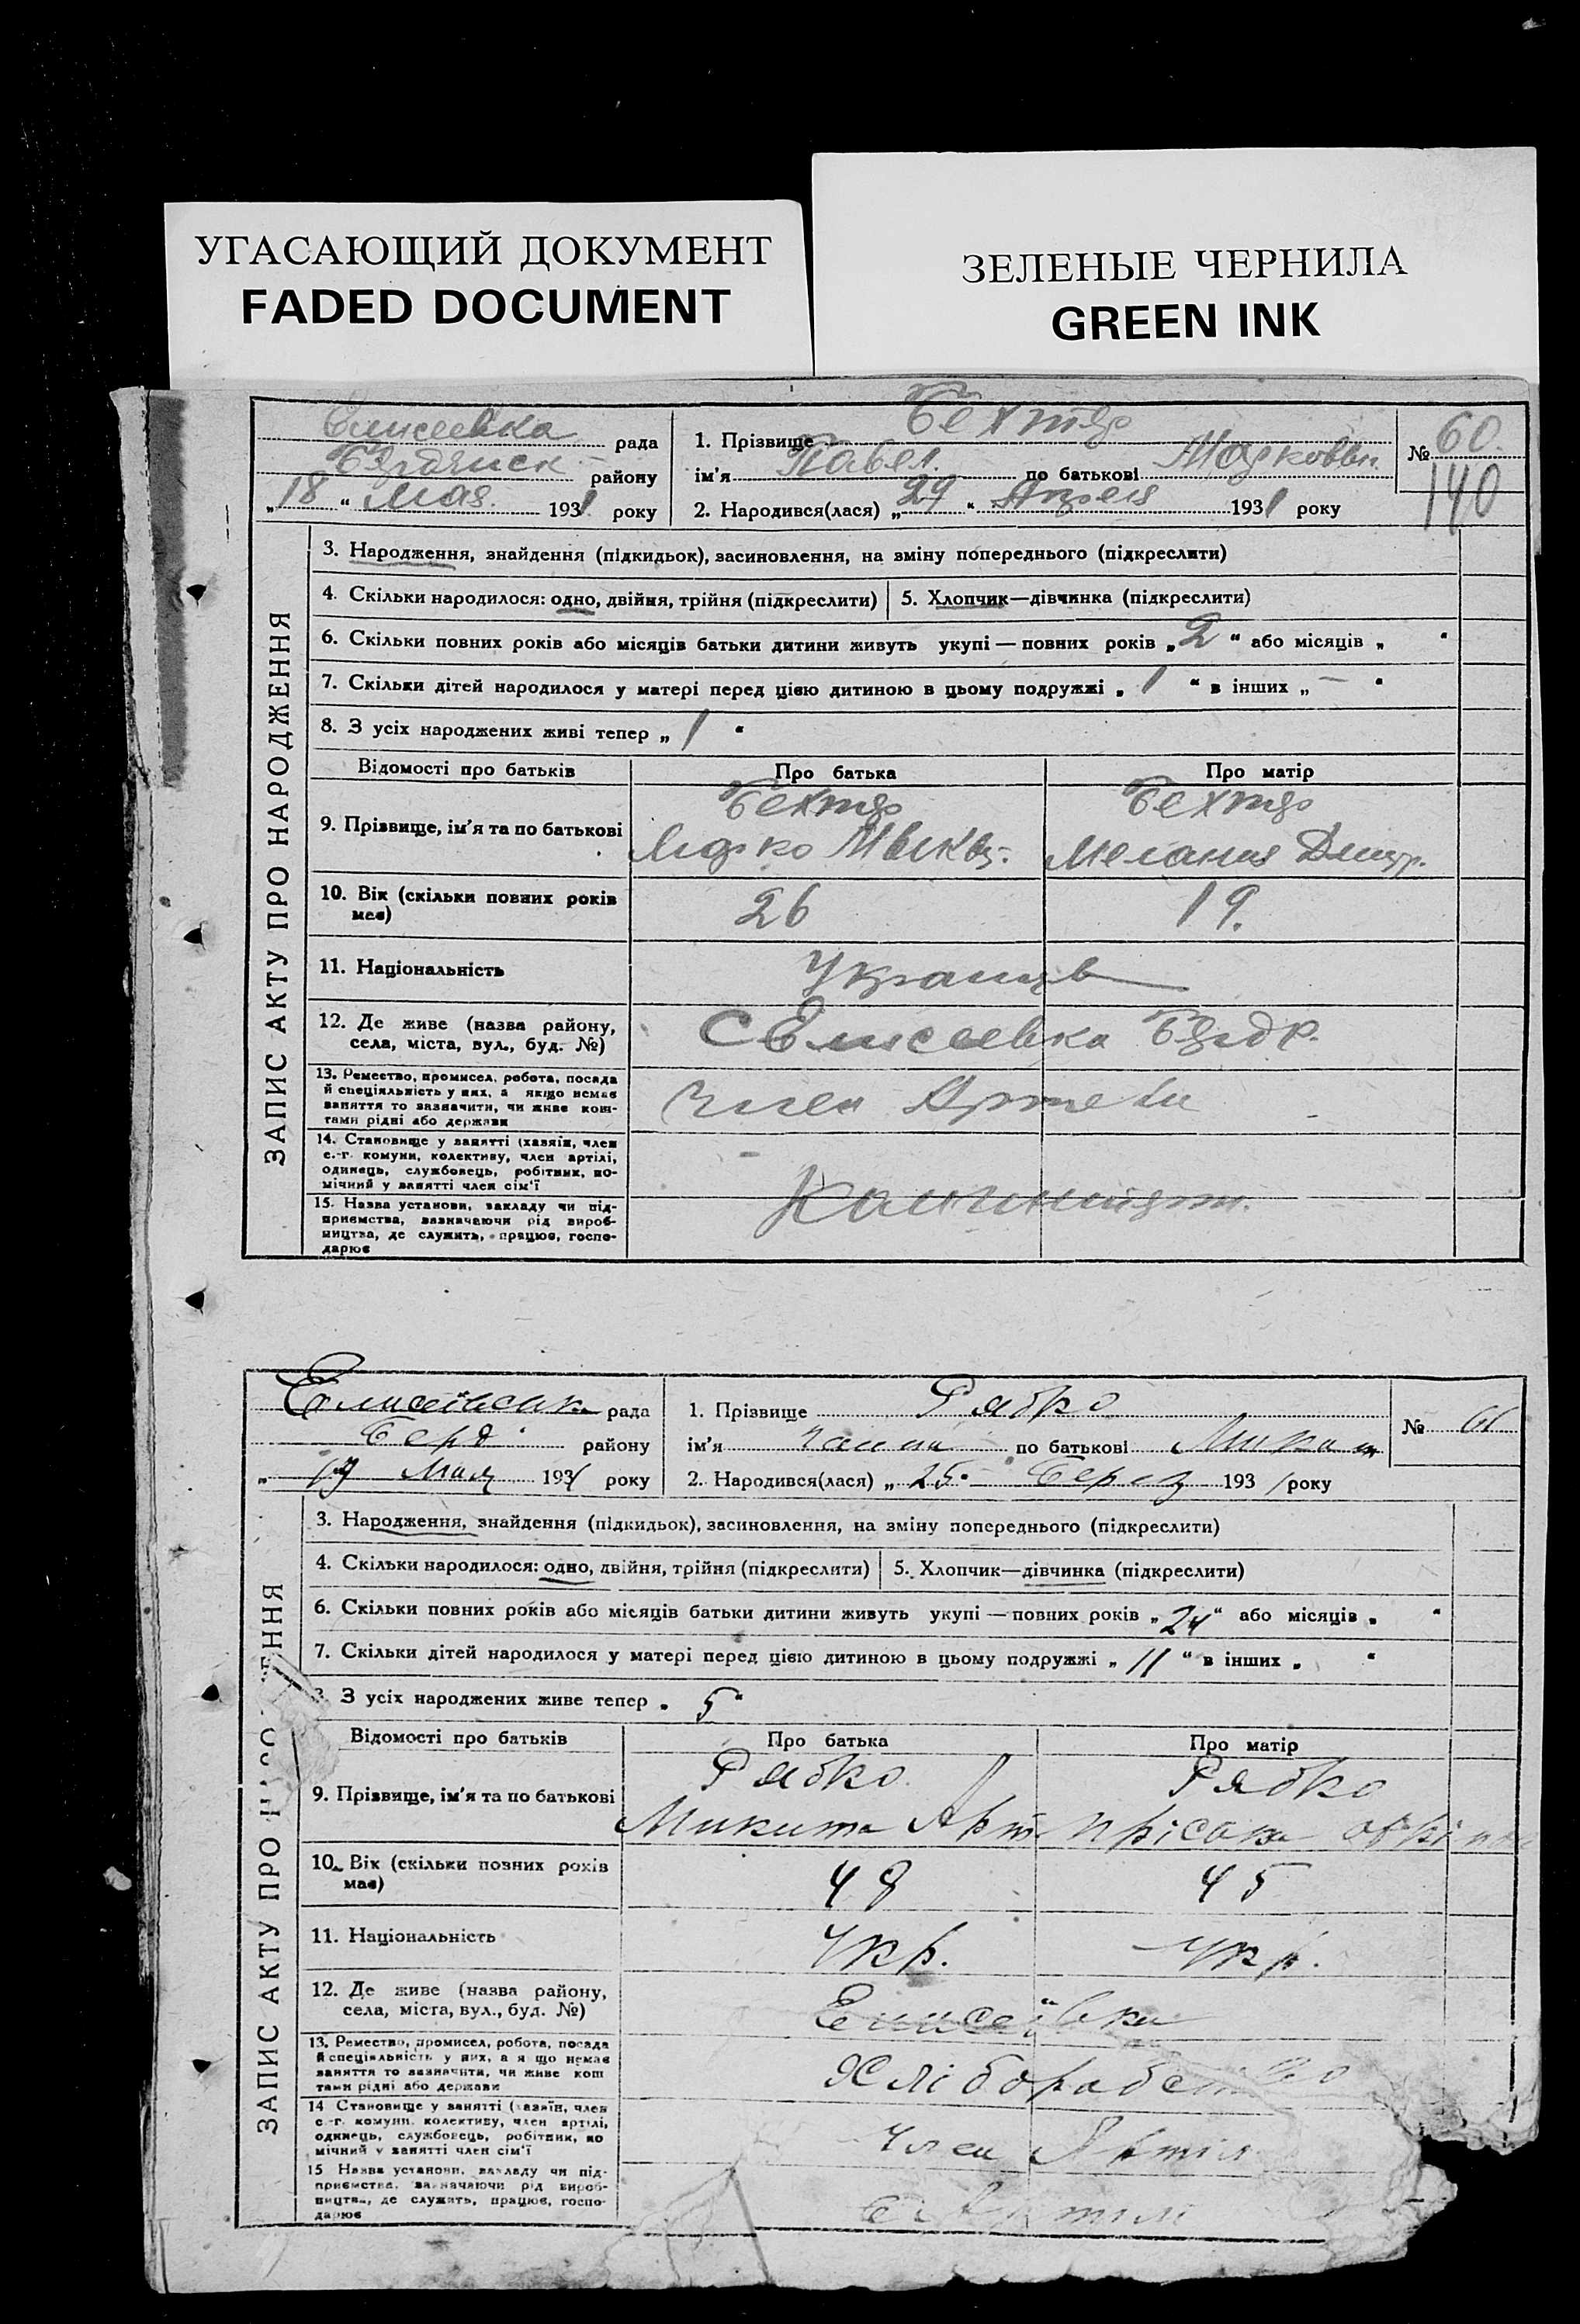 УГАСАЮЩИЙ ДОКУМЕНТ
FADED DOCUMENT
ЗЕЛЕНЫЕ ЧЕРНИЛА
GREEN INK
Елисеевка рада
Бердянск района району
„18“ Мая. 1931 року
1. Прізвище Бехтер
ім'я Павел. по батькові Марковвч.
2. Народився(лася) „29“ Апреля 1931 року
№ 60.
140
ЗАПИС АКТУ ПРО НАРОДЖЕННЯ
3. Народження, знайдення (підкидьок), засиновлення, на зміну попереднього (підкреслити)
4. Скільки народилося: одно, двійня, трійня (підкреслити)
5. Хлопчик—дівчинка (підкреслити)
6. Скільки повних років або місяців батьки дитини живуть укупі — повних років „2“ або місяців „ “
7. Скільки дітей народилося у матері перед цією дитиною в цьому подружжі „1“ в інших „—“
8. З усіх народжених живі тепер „1“
Відомості про батьків Про батька Про матір
9. Прізвище, ім'я та по батькові
Бехтер Бехтер
Марко Мелания Дмитр.
10. Вік (скільки повних років має)
26 19.
11. Національність
12. Де живе (назва району,
села, міста, вул., буд. №)
С Елисеевка Берд р.
13. Ремество, промисел, робота, посада
й спеціяльність у них, а якщо немає
заняття то зазначити, чи живе кош-
тами рідні або держави
Член Артели
14. Становище у занятті (хазяїн, член
с.-г. комуни, колективу, член артілі,
одинець, службовець, робітник, по-
мічний у занятті член сім'ї
15. Назва установи, закладу чи під-
приємства, зазначаючи рід вироб-
ництва, де служить, працює, госпо-
дарює
Елисеївськ рада
Берд. району
„19 Мая 1931 року
1. Прізвище Рябко
ім'я по батькові Микит
2. Народився(лася) „25. Берез 1931 року
№ 61
ЗАПИС АКТУ ПРО
3. Народження, знайдення (підкидьок), засиновлення, на зміну попереднього (підкреслити)
4. Скільки народилося: одно, двійня, трійня (підкреслити)
5. Хлопчик—дівчинка (підкреслити)
6. Скільки повних років або місяців батьки дитини живуть укупі — повних років „24“ або місяців „ “
7. Скільки дітей народилося у матері перед цією дитиною в цьому подружжі „11“ в інших „ “
З усіх народжених живе тепер „5“
Відомості про батьків Про батька Про матір
9. Прізвище, ім'я та по батькові
Рябко Рябко
Микита Арт.
10. Вік (скільки повних років
має)
48 45
11. Національність
Укр. Укр.
12. Де живе (назва району,
села, міста, вул., буд. №)
Елисеївка
13. Ремество, промисел, робота, посада
й спеціяльність у них, а якщо немає
заняття то зазначити, чи живе кош
тами рідні або держави
14 Становище у занятті (хазяїн, член
с.-г. комуни, колективу, член артілі,
одинець, службовець, робітник, по
мічний у занятті член сім'ї
Член Артіл
15 Назва установи, закладу чи під-
приємства, зазначаючи рід вироб-
ництва, де служить, працює, госпо-
дарює